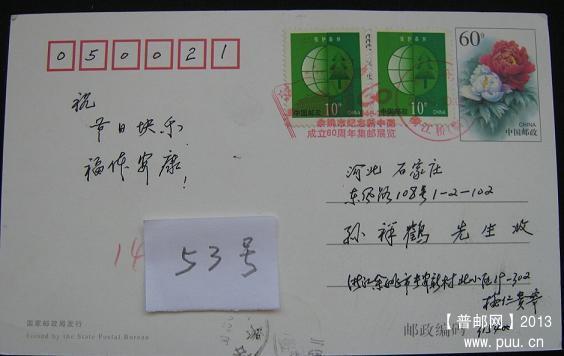 050021
祝
节日快乐
福体安康!
保护森林
10分
中国邮政 CHINA
10分
中国邮政 CHINA
60分
CHINA
中国邮政
余姚市纪念新中国
成立60周年集邮展览
河北 石家庄
东风路108号1-2-102
孙祥鹤 先生收
浙江余姚市
19-302
14
53号
国家邮政局发行
Issued by the State Postal Bureau
邮政编码
【普邮网】2013
www.puu.cn